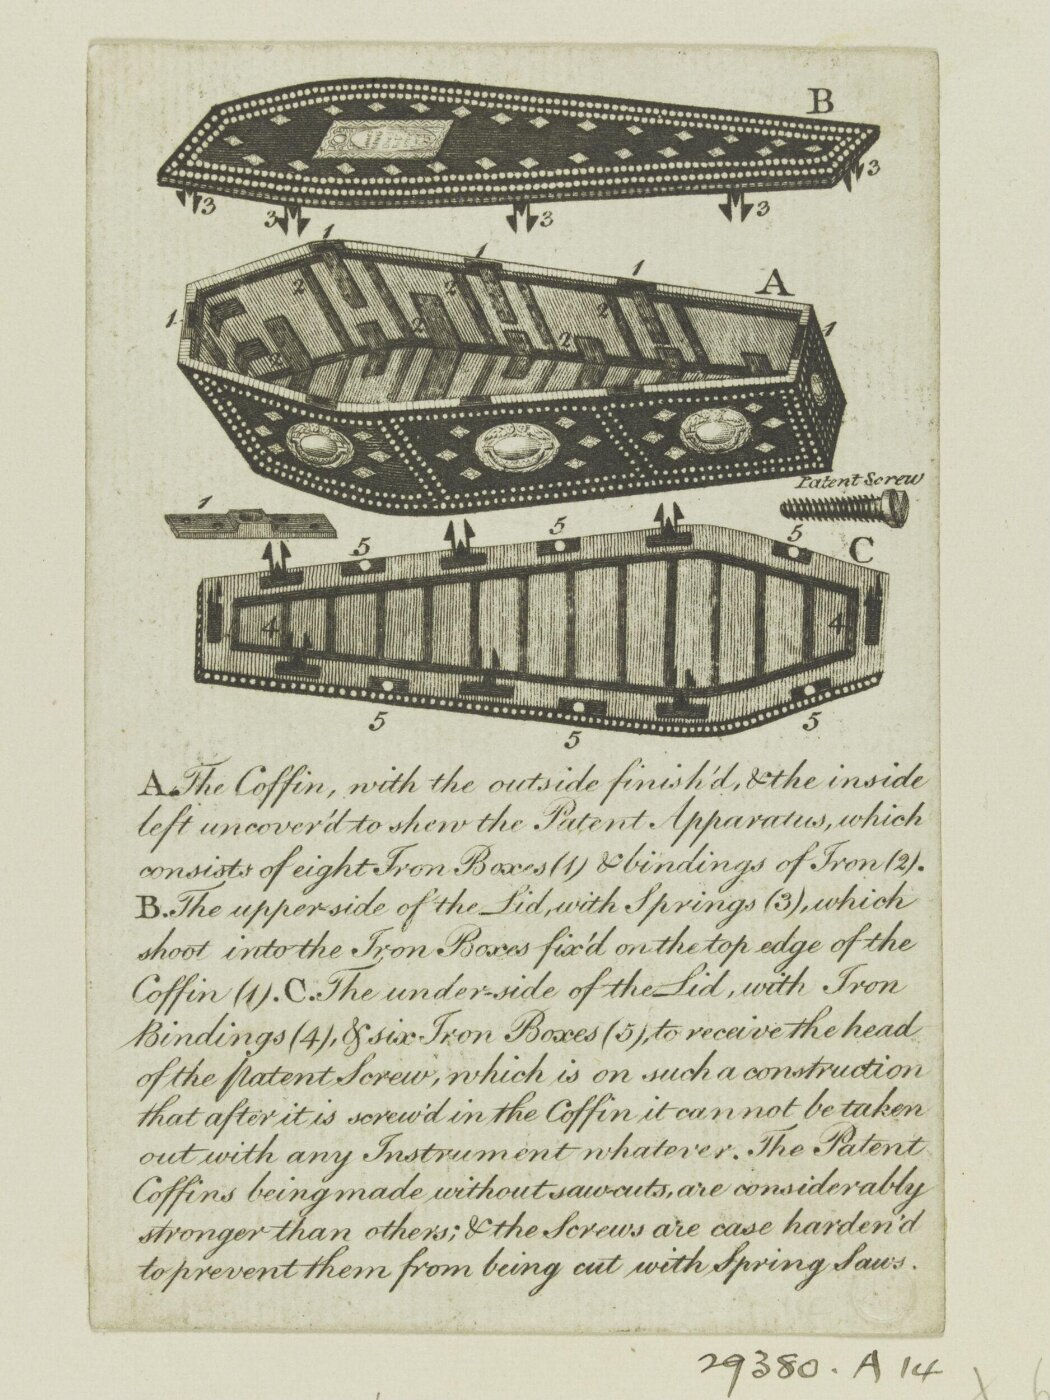 B
3
3
3
3
3
1
1
1
A
1
1
2
2
2
2
2
Patent Screw
1
5
5
5
C
4
4
5
5
5
A. The Coffin, with the outside finish'd, & the inside
left uncover'd to shew the Patent Apparatus, which
consists of eight Iron Boxes (1) & bindings of Iron (2).
B. The upper side of the Lid, with Springs (3), which
shoot into the Iron Boxes fix'd on the top edge of the
Coffin (1). C. The under-side of the Lid, with Iron
Bindings (4), & six Iron Boxes (5), to receive the head
of the patent Screw, which is on such a construction
that after it is screw'd in the Coffin it cannot be taken
out with any Instrument whatever. The Patent
Coffins being made without saw-cuts, are considerably
stronger than others; & the Screws are case harden'd
to prevent them from being cut with Spring Saws.
29380. A 14